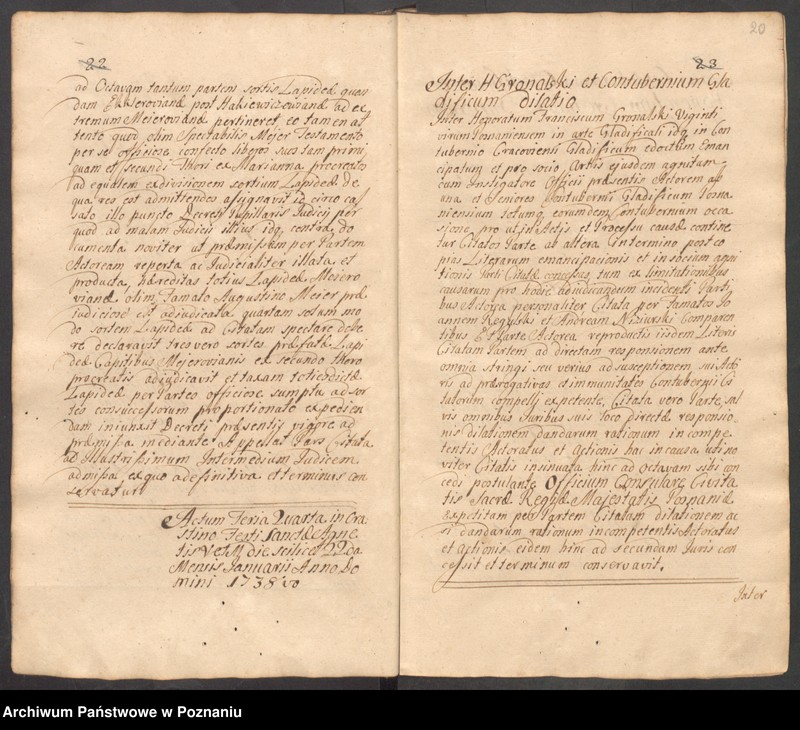 22
ad Octavam tantum partem sortis Lapideæ quon
dam Ekklerovianæ post Hakiewiczovianæ ad ex
tremum Meierovianæ pertineret, ec tamen at
tento quod olim Spectabilis Mejer Testamento
per se officiose confecto liberos suos tam primi
quam et secundi Thori ex Marianna procreatos
ad equalem exdivisionem sortium Lapideæ de
qua res est admittendos assignavit id circo ca
sato illo puncto Decreti Pupillaris Judicij per
quod ad malam Judicii illius idq, contra do
cumenta noviter ut præmissum per Partem
Actoream reperta ac Judicialiter illata et
producta, hæreditas totius Lapideæ Meiero
vianæ olim Famato Augustino Meier præ
judiciose est adjudicata quartam solum mo
do sortem Lapideæ ad Citatam spectare debe
re declaravit tres vero sortes præfatæ Lapi
deæ Capitibus Mejerovianis ex secundo thoro
procreatis adjudicavit et taxam toties dictæ
Lapideæ per Partes officiose sumptu ad sor
tes consuccessorum proportionato expedien
dam iniunxit Decreti præsentis vigore ad
præmissa mediante. Appellat Pars Citata
ad Illustrissimum Intermedium Judicem
admissa, ex quo a definitiva et terminus con
servatur
Actum Feria Quarta in Cra
stino Festi Sanctæ Agne
tis V et M die scilicet 22da
Mensis Januarii Anno Do
mini 1738vo
20
23
Inter H Gronalski et Contubernium Gla
dificum dilatio
Inter Honoratum Franciscum Gronalski Viginti
virum Posnaniensem in arte Gladificali idq in Con
tubernio Cracoviensi Gladificum edoctum Eman
cipatum et pro socio Artis ejusdem agnitum
cum Instigatore Officii præsentis Actorem ab
una et Seniores Contubernii Gladificum Posna
niensium totumq eorumdem Contubernium occa
sione pro ut in Actis et Processu causæ contine
tur Citatos Parte ab altera In termino post co
pias Literarum emancipacionis et in socium agni
tionis Parti Citatæ concessas tum ex limitationibus
causarum pro hodie adjudicandum incidenti Parti
bus Actorea personaliter Citata per Famatos Jo
annem Regulski et Andream Niziurski Comparen
tibus Et Parte Actorea reproductis iisdem Literis
Citatam Partem ad directam responsionem ante
omnia stringi seu verius ad susceptionem sui Acto
ris ad prærogativas et immunitates Contubernii Ci
tatorum compelli expetente, Citata vero Parte, sal
vis omnibus Juribus suis loco directæ responsio
nis dilationem dandarum rationum in compe
tentis Actoratus et Actionis hac in causa uti no
viter Citatis insinuata hinc ad octavam sibi con
cedi postulante Officium Consulare Civita
tis Sacræ Regiæ Majestatis Posnaniæ
expetitam per Partem Citatam dilationem ac
si dandarum rationum incompetentis Actoratus
et actionis eidem hinc ad secundum Juris con
cessit et terminum conservavit.
Inter
Archiwum Państwowe w Poznaniu